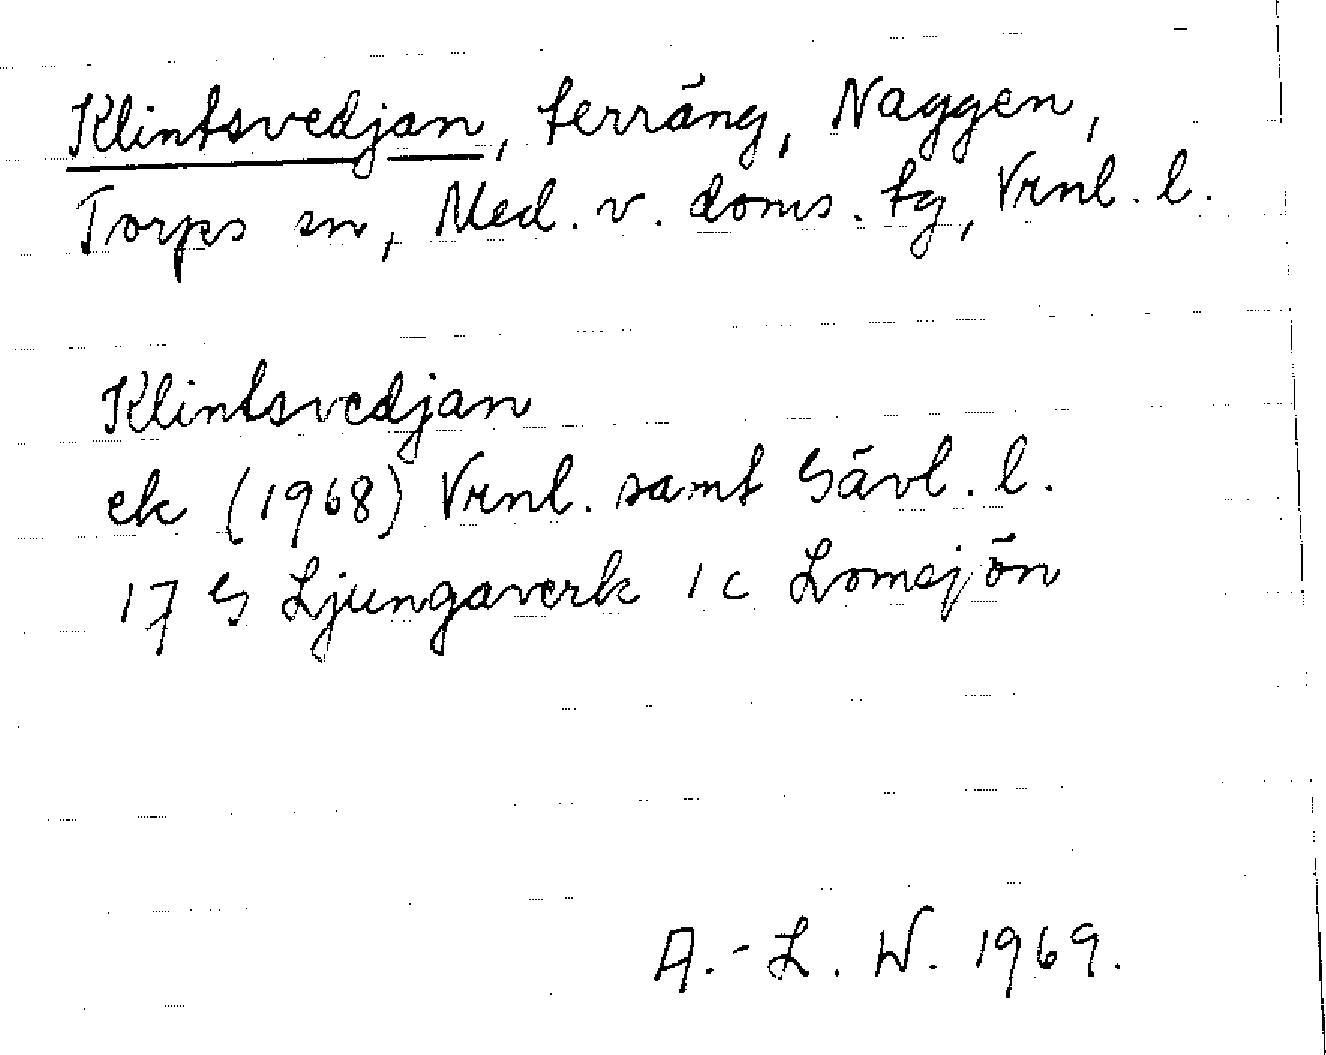 Klintsvedjan, terräng, Naggen,
Torps sn, Med. v. doms. tg, Vrnl. l.
Klintsvedjan
ek (1968) Vrnl. samt Gävl. l.
17 G Ljungaverk 1 c Lomsjön
A.-L. W. 1969.